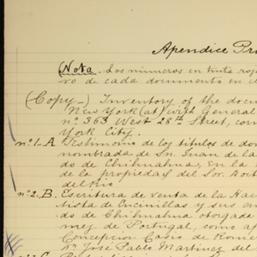 Apendice Pri
(Nota. Los números en tinta roj
ro de cada documento en e
(Copy-) Inventory of the docu
New York (at) with General
nº 363 West 28th Street, cor
York City.
nº1. A. Testimonio de los titulos de do
nombrada de San Juan de la
do de Chihuahua, en la
de la propiedad del Sor. Doct
del Rio
nº2. B. Escritura de venta de la Hac
tista de Encinillas y sus an
do de Chihuahua otorgada
mez de Portugal, como ap
Concepcion Cano de Rome
Dn. José Pablo Martinez del